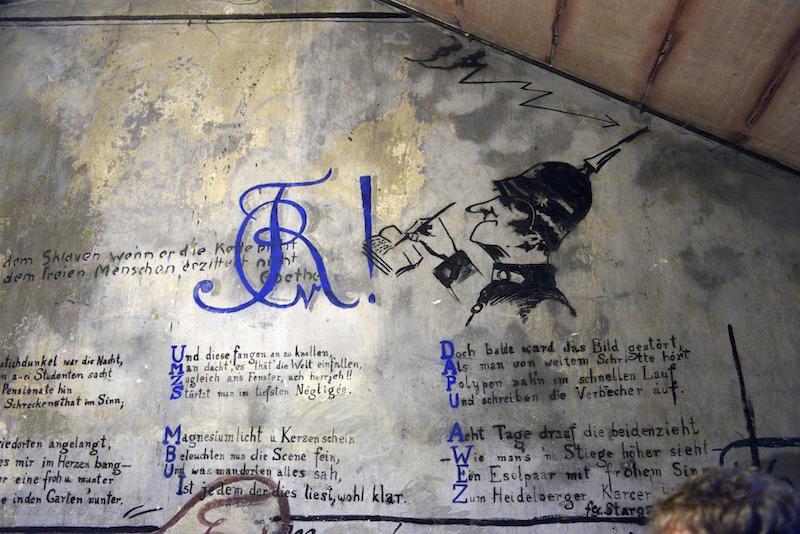 dem Sklaven wenn er die Kette bricht
dem freien Menschen erzittert nicht
Goethe
!
stichdunkel war die Nacht,
zwei Studenten sacht
Pensionate hin
Schreckensthat im Sinn;
angelangt,
es mir im Herzen bang—
er eine froh u. munter
e in den Garten 'runter.
Und diese fangen an zu knallen,
Man dacht', es "that" die Welt einfallen,
Zugleich ans Fenster, ach herrjeh!!
Stürtzt man im tiefsten Négligée.
Magnesiumlicht u Kerzenschein
Beleuchten nun die Scene fein,
Und was man dorten alles sah,
Ist jedem der dies liest, wohl klar.
Doch balde ward das Bild gestört,
Als man von weitem Schritte hört
Polypen nah'n im schnellen Lauf
Und schreiben die Verbrecher auf.
Acht Tage drauf die beiden zieht
—Wie man's 'ne Stiege höher sieht—
Ein Eselpaar mit frohem Sinn
Zum Heidelberger Karcer
fec.